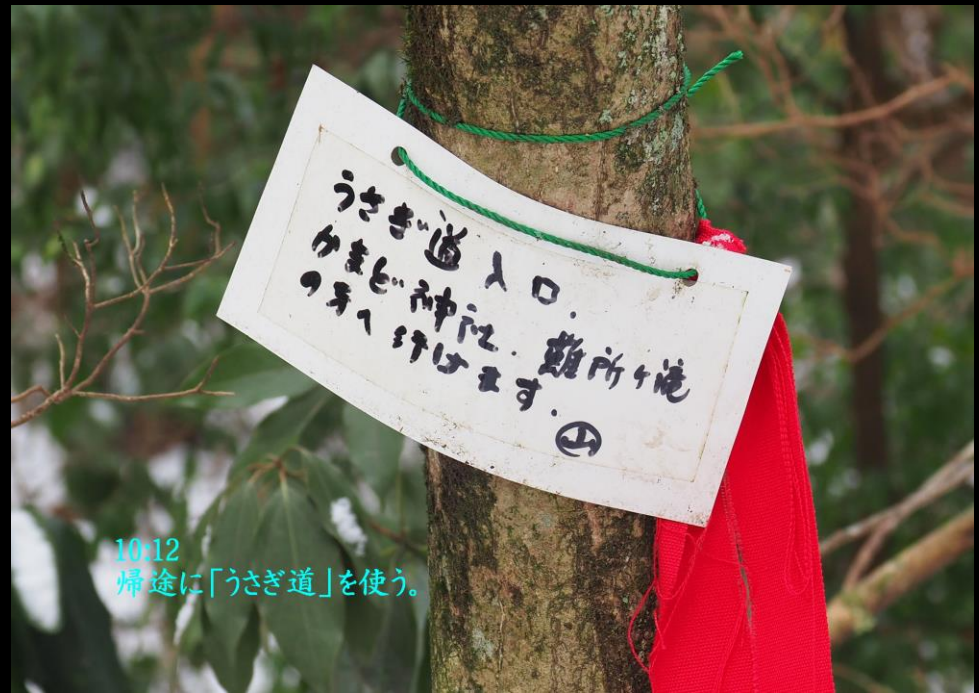 うさぎ道入口.
かまど神社.難所ヶ滝
の方へ行けます.
山
10:12
帰途に「うさぎ道」を使う。